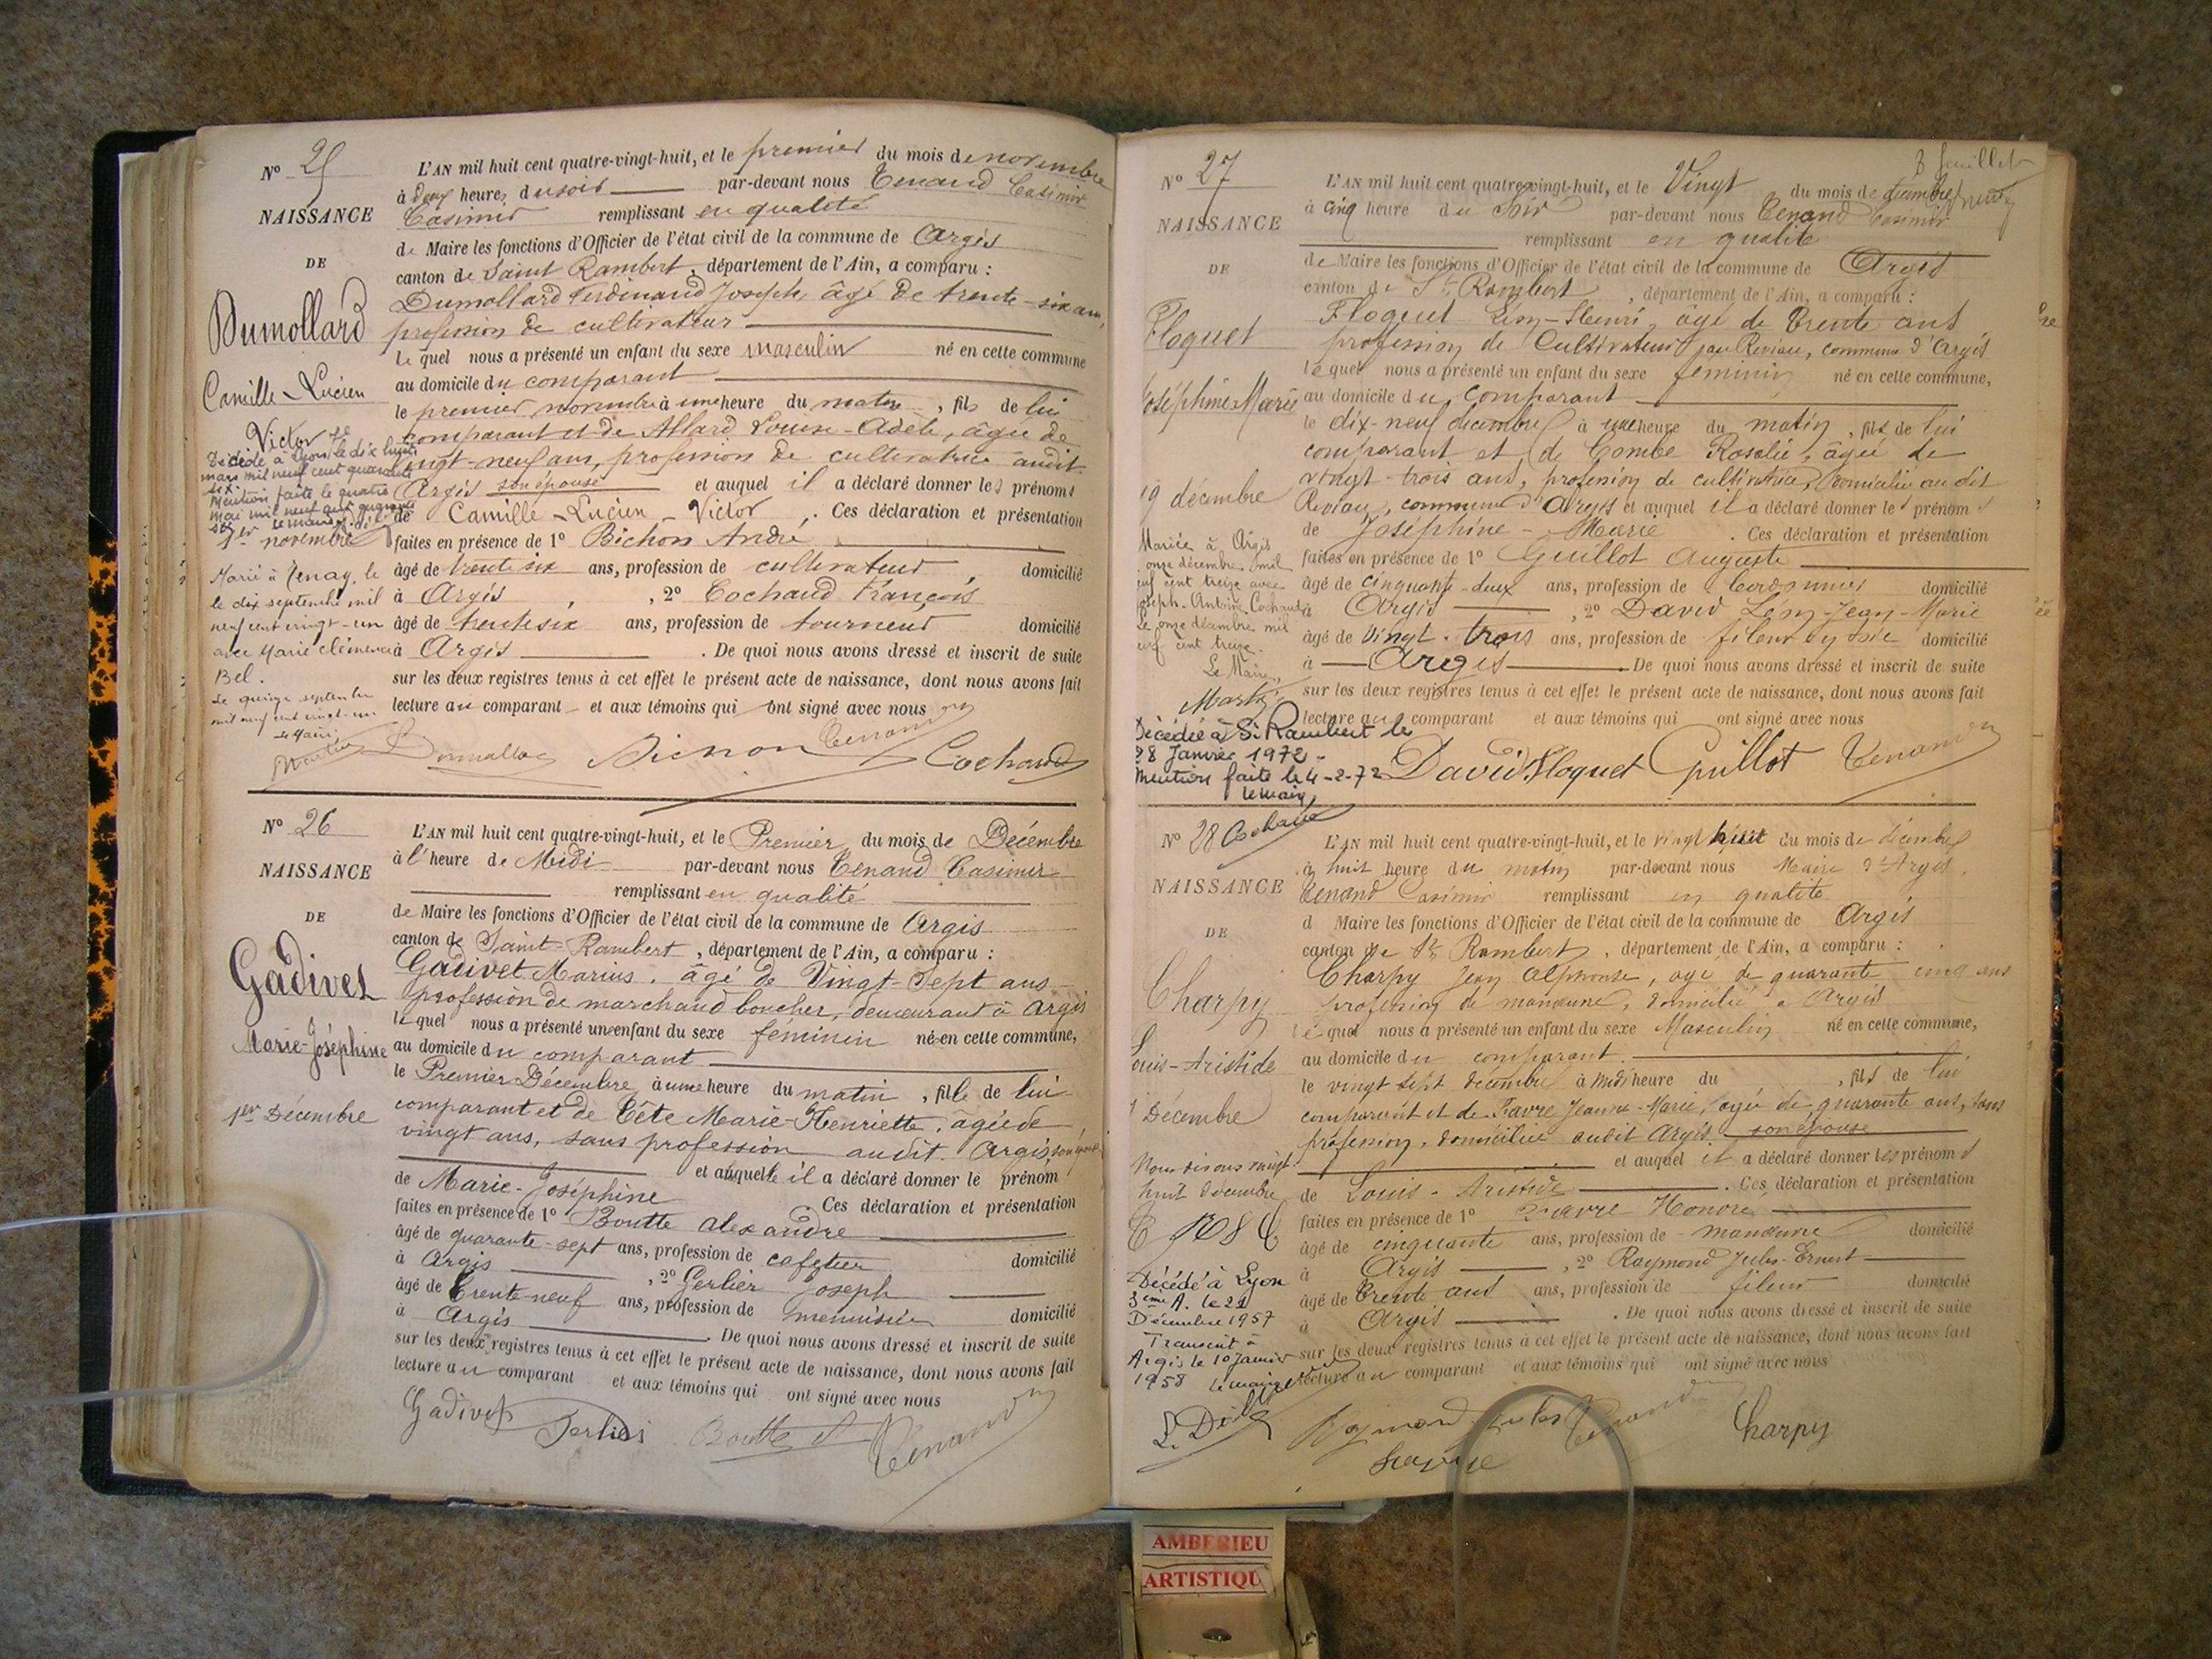 Nº 25
NAISSANCE
DE
Dumollard
Camille-Lucien
Victor
Décédé à Lyon le dix huit
mars mil neuf cent quarante
six.
Mention faite le quatre
mai mil neuf cent quarante
six le maire
1er novembre
Marié à Tenay, le
le dix septembre mil
neuf cent vingt-un
avec Marie Clémence
Bel.
Le quinze septembre
mil neuf cent vingt-un
Le Maire
L'AN mil huit cent quatre-vingt-huit, et le premier du mois de novembre
à deux heures du soir par-devant nous Tenand Casimir
Casimir remplissant en qualité
de Maire les fonctions d'Officier de l'état civil de la commune de Argis
canton de Saint Rambert, département de l'Ain, a comparu :
Dumollard Ferdinand Joseph, âgé de trente-six ans,
profession de cultivateur
le quel nous a présenté un enfant du sexe masculin né en cette commune
au domicile du comparant
le premier novembre à une heure du matin, fils de lui
comparant et de Allard Louise-Adèle, âgée de
vingt-neuf ans, profession de cultivatrice audit
Argis son épouse et auquel il a déclaré donner les prénoms
de Camille-Lucien-Victor. Ces déclaration et présentation
faites en présence de 1º Bichon André
âgé de trente six ans, profession de cultivateur, domicilié
à Argis, 2º Cochaud François
âgé de trente six ans, profession de tourneur domicilié
à Argis. De quoi nous avons dressé et inscrit de suite
sur les deux registres tenus à cet effet le présent acte de naissance, dont nous avons fait
lecture au comparant et aux témoins qui ont signé avec nous
Martin Dumollard Bichon Tenand Cochaud
Nº 26
NAISSANCE
DE
Gadivet
Marie-Joséphine
1er Décembre
L'AN mil huit cent quatre-vingt-huit, et le Premier du mois de Décembre
à l'heure de Midi par-devant nous Tenand Casimir
remplissant en qualité
de Maire les fonctions d'Officier de l'état civil de la commune de Argis
canton de Saint-Rambert, département de l'Ain, a comparu :
Gadivet Marius. âgé de Vingt-Sept ans
profession de marchand boucher, demeurant à Argis
le quel nous a présenté une enfant du sexe féminin née en cette commune,
au domicile du comparant
le Premier Décembre à une heure du matin, fille de lui
comparant et de Tête Marie-Henriette. âgée de
vingt ans, sans profession audit. Argis, son épouse
et auquelle il a déclaré donner le prénom
de Marie-Joséphine Ces déclaration et présentation
faites en présence de 1º Boutte alexandre
âgé de quarante-sept ans, profession de cafetier domicilié
à Argis, 2º Gerlier Joseph
âgé de Trente-neuf ans, profession de menuisier domicilié
à Argis. De quoi nous avons dressé et inscrit de suite
sur les deux registres tenus à cet effet le présent acte de naissance, dont nous avons fait
lecture au comparant et aux témoins qui ont signé avec nous
Gadivet Gerlier Boutte Tenand
8 feuillet
Nº 27
NAISSANCE
DE
Floquet
Joséphine Marie
19 décembre
Mariée à Argis
onze décembre mil
neuf cent treize avec
Joseph-Antoine Cochaud
Le onze décembre mil
neuf cent treize.
Le Maire,
Martin
Décédée à St Rambert le
28 Janvier 1972.
Mention faite le 4-2-72
le maire,
Cochaud
L'AN mil huit cent quatre-vingt-huit, et le Vingt du mois de décembre
à cinq heure du Soir par-devant nous Tenand Casimir
remplissant en qualité
de Maire les fonctions d'Officier de l'état civil de la commune de Argis
canton de St Rambert, département de l'Ain, a comparu :
Floquet Léon-Henri, âgé de Trente ans
profession de Cultivateur, commune d'Argis
le quel nous a présenté un enfant du sexe féminin né en cette commune,
au domicile du Comparant
le dix-neuf décembre à une heure du matin, fils de lui
comparant et de Combe Rosalie, âgée de
vingt-trois ans, profession de cultivatrice, domiciliée au dit
Reviau, commune d'Argis et auquel il a déclaré donner les prénoms
de Joséphine-Marie. Ces déclaration et présentation
faites en présence de 1º Guillot Auguste
âgé de cinquante-deux ans, profession de Cordonnier domicilié
à Argis, 2º David Léon-Jean-Marie
âgé de vingt-trois ans, profession de fileur domicilié
à Argis. De quoi nous avons dressé et inscrit de suite
sur les deux registres tenus à cet effet le présent acte de naissance, dont nous avons fait
lecture au comparant et aux témoins qui ont signé avec nous
David Floquet Guillot Tenand
Nº 28
NAISSANCE
DE
Charpy
Louis-Aristide
Décembre
Nous disons vingt
huit décembre
Décédé à Lyon
3ème A. le 21
Décembre 1957
Transcrit à
Argis le 10 Janvier
1958 le maire
L'AN mil huit cent quatre-vingt-huit, et le vingt huit du mois de décembre
à huit heure du matin par-devant nous Maire d'Argis.
Tenand Casimir remplissant en qualité
d Maire les fonctions d'Officier de l'état civil de la commune de Argis
canton de St Rambert, département de l'Ain, a comparu :
Charpy Jean Alphonse, âgé de quarante cinq ans
profession de manœuvre, domicilié à Argis
le quel nous a présenté un enfant du sexe Masculin né en cette commune,
au domicile du comparant.
le vingt sept décembre à midi heure du , fils de lui
comparant et de Favre Jeanne-Marie, âgée de quarante ans, sans
profession, domiciliée audit Argis son épouse
et auquel il a déclaré donner les prénoms
de Louis-Aristide. Ces déclaration et présentation
faites en présence de 1º Favre Honoré
âgé de cinquante ans, profession de manœuvre domicilié
à Argis, 2º Raymond Jules-Ernest
âgé de Trente ans ans, profession de fileur domicilié
à Argis. De quoi nous avons dressé et inscrit de suite
sur les deux registres tenus à cet effet le présent acte de naissance, dont nous avons fait
lecture au comparant et aux témoins qui ont signé avec nous
Raymond Jules Tenand Charpy
Favre
AMBERIEU
ARTISTIQU